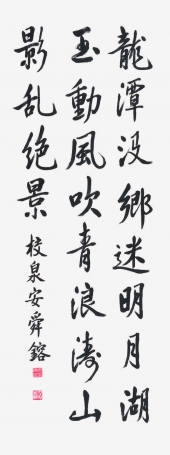 龍潭没鄉迷明月湖
玉動風吹青浪濤山
影乱绝景
校泉安舜鎔